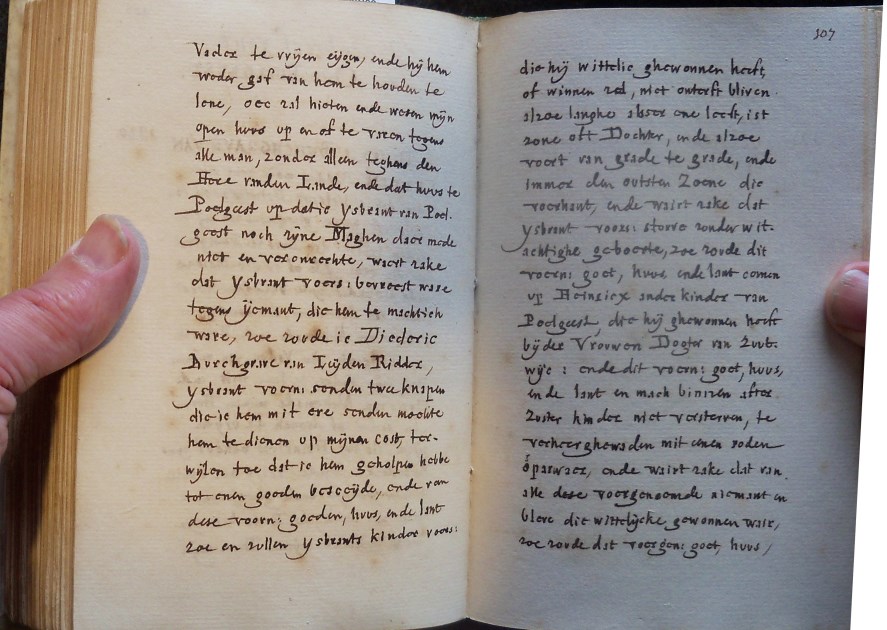 Vader te vrijen eijgen, ende hij hem
weder gaf van hem te houden te
lene, oec zal hieten ende wesen mijn
open huus up en of te varen tegens
alle man, zonder alleen teghens den
Here vanden Lande, ende dat huus te
Poelgeest up datic ysbrant van Poel-
geest noch zijne Maghen daer mede
niet en veronrechte, waert zake
dat ysbrant voers: bevreest ware
tegens ijemant, die hem te machtich
ware, zoe zoude ic Diederic
Burchgrave van Leijden Ridder,
ysbrant voern: senden twee knapen
die ic hem mit ere senden mochte
hem te dienen up mijnen cost, ter-
wijlen toe dat ic hem geholpen hebbe
tot enen goeden besceijde, ende van
dese voorn: goeden, huus, ende lant
zoe en zullen ysbrants kinder voors:
107
die hij wittelic ghewonnen heeft,
of winnen zal, niet onterft bliven
alzoe langhe alser ene leeft, ist
zone oft Dochter, ende alzoe
voert van grade te grade, ende
immer den outsten Zoene die
voerhant, ende wairt zake dat
ysbrant voors: storve zonder wit-
achtighe geboerte, zoe zoude dit
voern: goet, huus ende lant comen
up Heinricx ander kinder van
Poelgeest, die hij ghewonnen heeft
bijder Vrouwen Dogter van Zuut-
wijc: ende dit voorn: goet, huus,
ende lant en mach binnen after
Zuster kinder niet versterven, te
verheerghewaden mit enen roden
sparwaer, ende wairt zake dat van
alle dese voorgenoemde niemant en
bleve die wittelijcke gewonnen wair,
zoe zoude dat voergen: goet, huus,